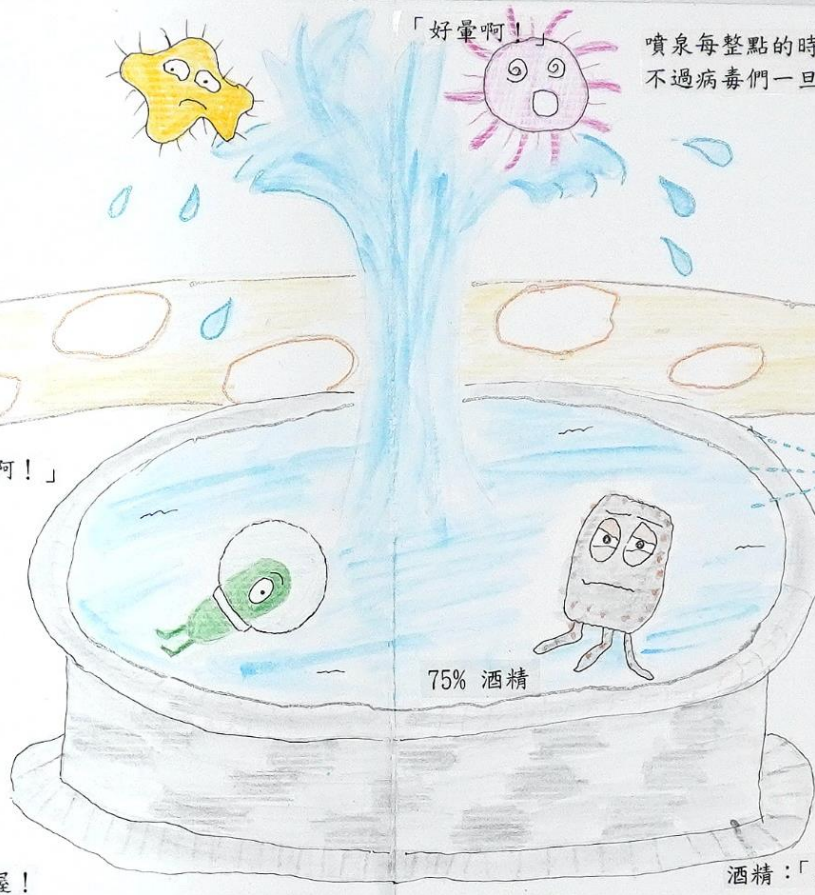 「好暈啊！」
噴泉每整點的時
不過病毒們一旦
啊！」
75% 酒精
酒精：「
！